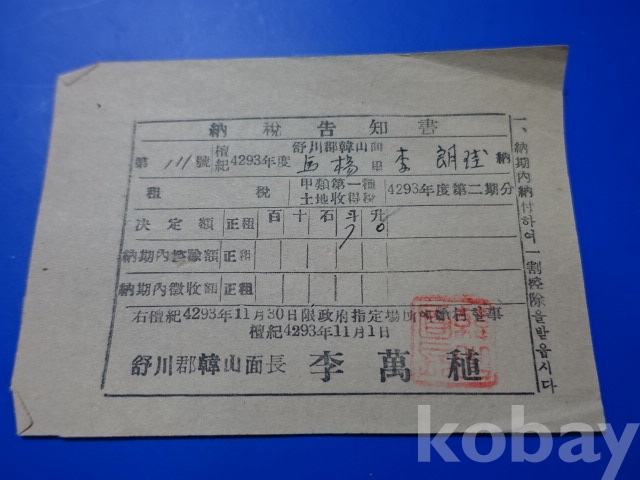 納稅告知書
第 111 號 檀紀4293年度 舒川郡韓山面 馬楊里 李朗 納
租稅 甲類第一種土地收得稅 4293年度第二期分
決定額 正租 百 十 石 斗 升
7 0
納期內控除額 正租
納期內徵收額 正租
右檀紀4293年11月30日限政府指定場所에納付할事
檀紀4293年11月1日
舒川郡韓山面長 李萬稙
一、納期內納付하여一割控除을받읍시다
kobay